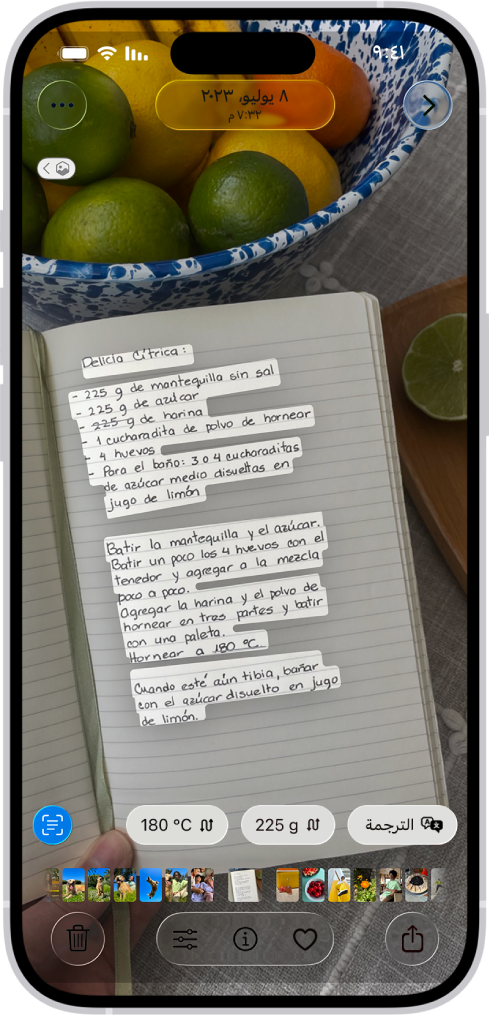 ٩:٤١
٨ يوليو، ٢٠٢٣
٧:٣٢ م
Delicia Cítrica:
- 225 g de mantequilla sin sal
- 225 g de azúcar
- 225 g de harina
- 1 cucharadita de polvo de hornear
- 4 huevos
- Para el baño: 3 o 4 cucharaditas
de azúcar medio disueltas en
jugo de limón
Batir la mantequilla y el azúcar.
Batir un poco los 4 huevos con el
tenedor y agregar a la mezcla
poco a poco.
Agregar la harina y el polvo de
hornear en tres partes y batir
con una paleta.
Hornear a 180 °C.
Cuando esté aún tibia, bañar
con el azúcar disuelto en jugo
de limón.
الترجمة
225 g
180 °C